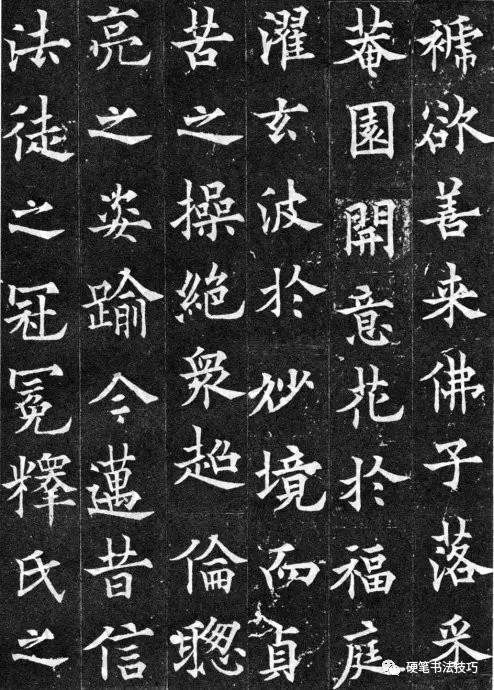 褫欲善来佛子落采
菴園開意花於福庭
濯玄波於玅境而貞
苦之操絶衆超倫聰
亮之姿踰今邁昔信
法徒之冠冕釋氏之
硬笔书法技巧